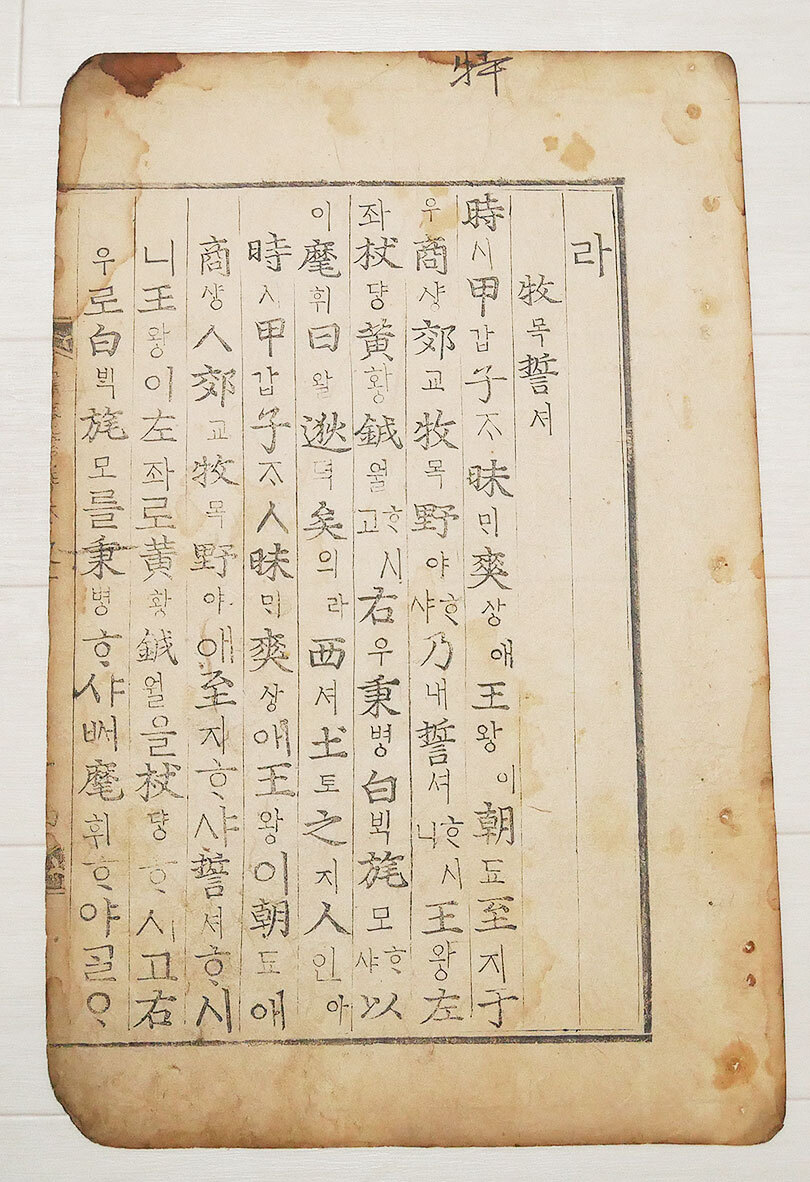 라
牧목誓셔
時시甲갑子ᄌᆞ昧ᄆᆡ爽상애王왕이朝됴至지于
우商샹郊교牧목野야ᄒᆞ샤乃내誓셔ᄒᆞ시니王왕左
좌杖댱黃황鉞월ᄒᆞ시고右우秉병白ᄇᆡᆨ旄모ᄒᆞ샤以
이麾휘曰왈逖텩矣의라西셔土토之지人인아
時시甲갑子ᄌᆞㅅ昧ᄆᆡ爽상애王왕이朝됴애
商샹ㅅ郊교牧목野야애至지ᄒᆞ샤誓셔ᄒᆞ시
니王왕이左좌로黃황鉞월을杖댱ᄒᆞ시고右
우로白ᄇᆡᆨ旄모를秉병ᄒᆞ샤ᄡᅥ麾휘ᄒᆞ야ᄀᆞᆯᄋᆞ